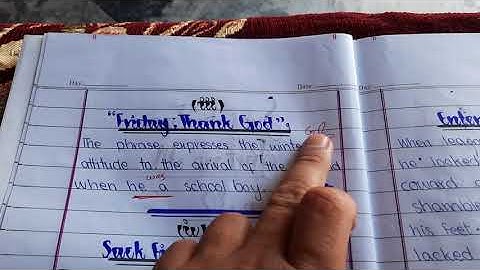 Date
(iii)
"Friday: Thank God",
The phrase expresses the winter
attitude to the arrival of the
when he was a school boy.
(iv)
Sack
Enter
When
he looked
coward
shamble
his feet.
lacked